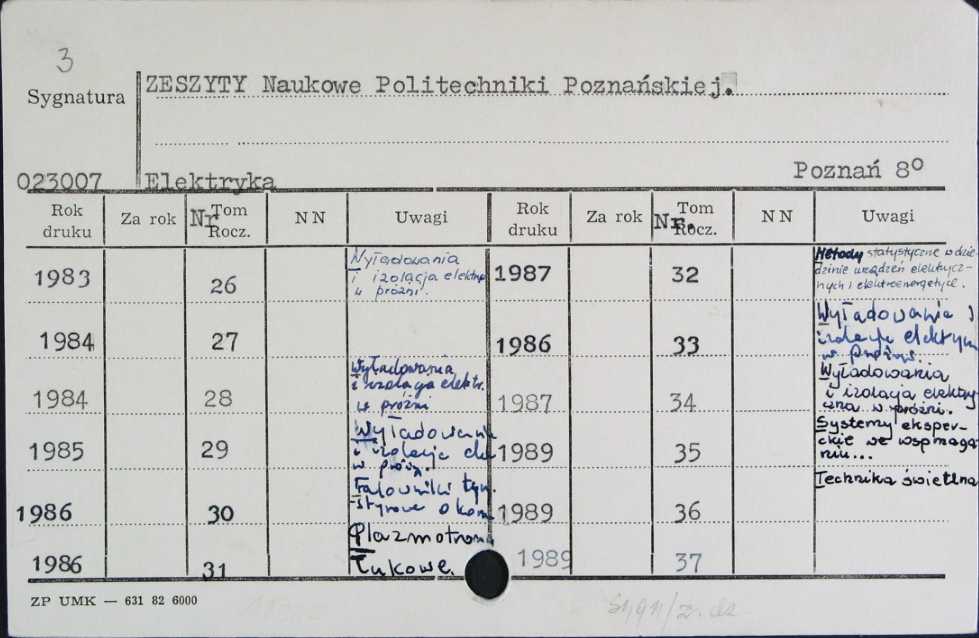 3
Sygnatura ZESZYTY Naukowe Politechniki Poznańskiej.
Poznań 8°
023007 Elektryka
Rok druku Za rok Nr Tom Rocz. NN Uwagi Rok druku Za rok Nr. Tom Rocz. NN Uwagi
1983 26 Wyładowania
i izolacja elektry
w próżni.
1984 27
1984 28 Wyładowania
i izolacja elektr.
w próżni
1985 29 Wyładowania
i izolacja ele
w próżn.
1986 30 Falowniki tyry
styrowe o kom
1986 31 Plazmotrony
Łukowe.
1987 32 Metody statystyczne w dzie-
dzinie urządzeń elektrycz-
nych i elektroenergetyce.
1986 33 Wyładowania i
izolacja elektrycz
w próżni.
1987 34 Wyładowania
i izolacja elektry-
czna w próżni.
1989 35 Systemy eksper-
ckie we wspomaga
niu...
1989 36 Technika świetlna
1989 37
ZP UMK — 631 82 6000